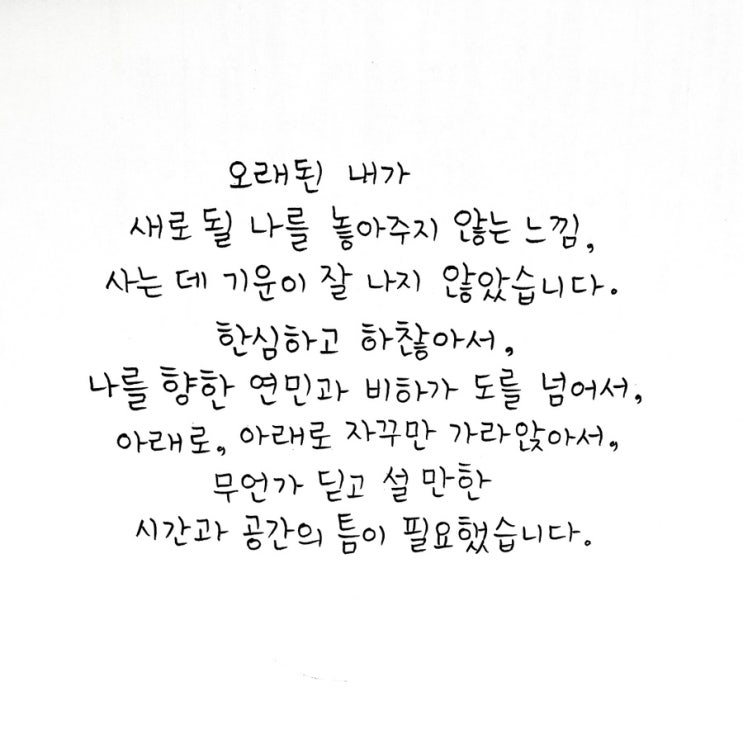 오래된 내가
새로 될 나를 놓아주지 않는 느낌,
사는 데 기운이 잘 나지 않았습니다.
한심하고 하찮아서,
나를 향한 연민과 비하가 도를 넘어서,
아래로, 아래로 자꾸만 가라앉아서,
무언가 딛고 설 만한
시간과 공간의 틈이 필요했습니다.